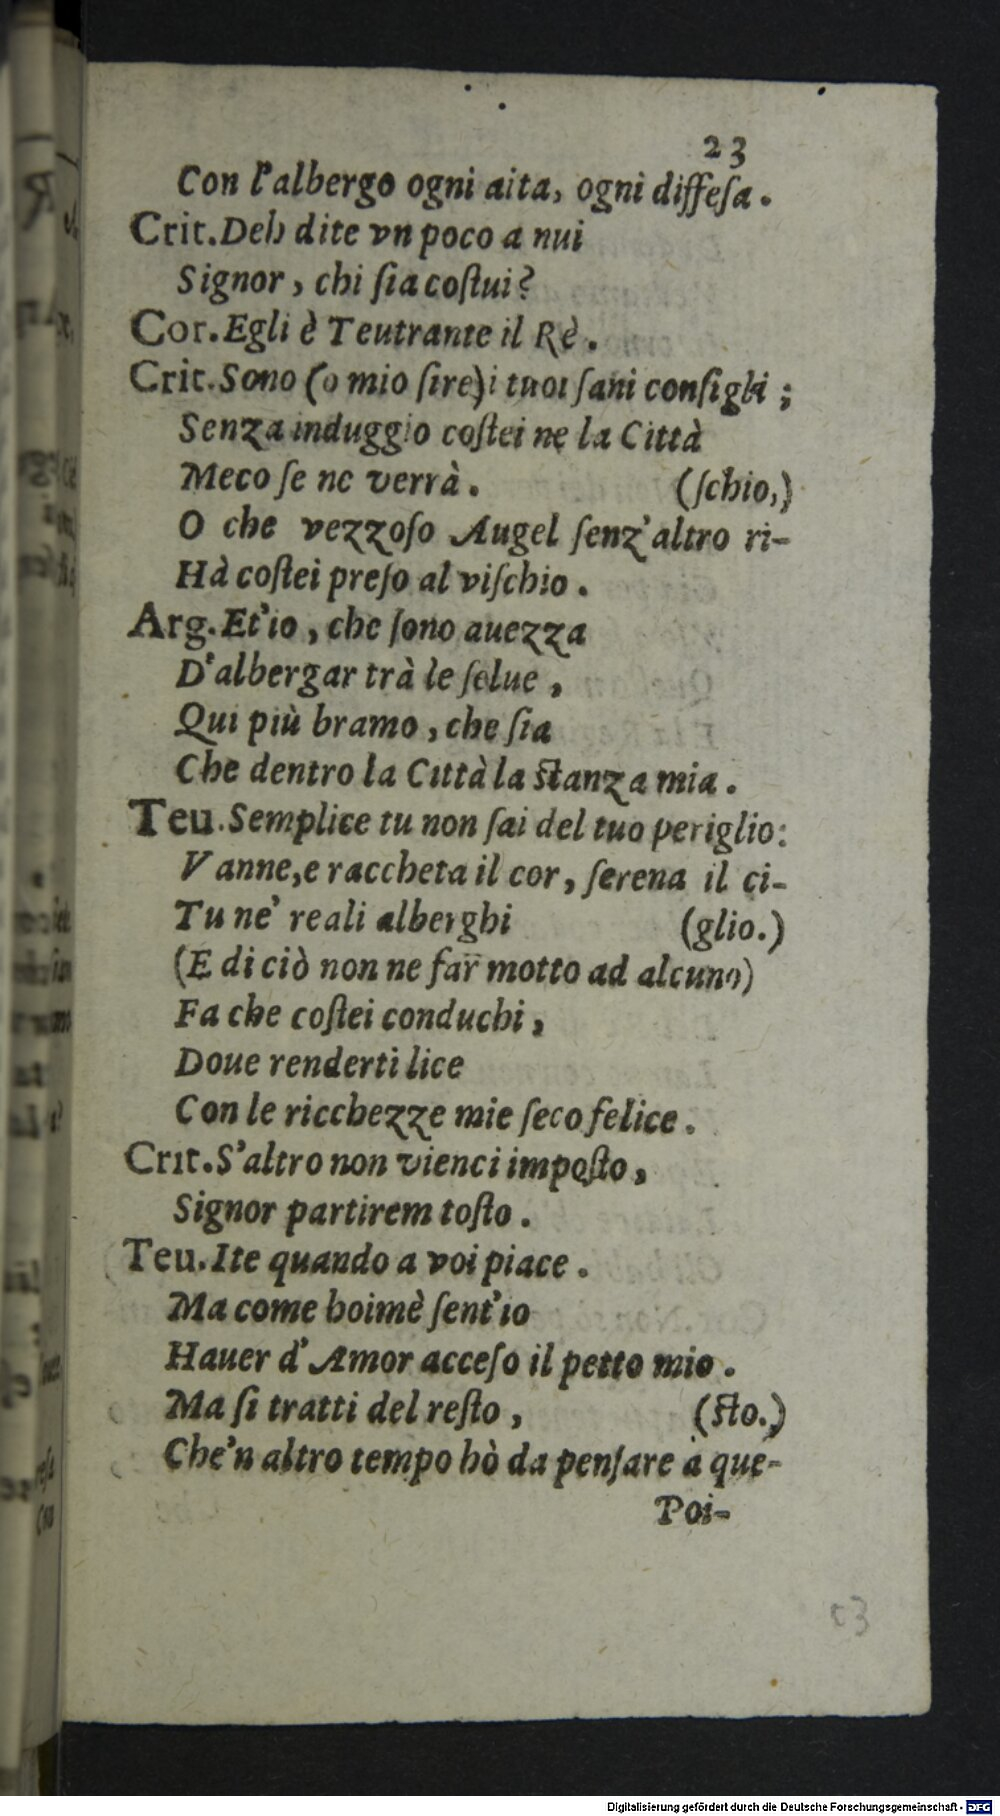 23
Con l'albergo ogni aita, ogni diffeſa.
Crit. Deh dite vn poco a nui
Signor, chi ſia coſtui?
Cor. Egli è Teutrante il Rè.
Crit. Sono (o mio ſire) i tuoi ſani conſigli;
Senza induggio coſtei ne la Città
Meco ſe ne verrà. (ſchio,)
O che vezzoſo Augel ſenz'altro ri-
Hà coſtei preſo al viſchio.
Arg. Et'io, che ſono auezza
D'albergar trà le ſelue,
Qui più bramo, che ſia
Che dentro la Città la ſtanza mia.
Teu. Semplice tu non ſai del tuo periglio:
Vanne, e raccheta il cor, ſerena il ci-
Tu ne' reali alberghi (glio.)
(E di ciò non ne far motto ad alcuno)
Fa che coſtei conduchi,
Doue renderti lice
Con le ricchezze mie ſeco felice.
Crit. S'altro non vienci impoſto,
Signor partirem toſto.
Teu. Ite quando a voi piace.
Ma come hoimè ſent'io
Hauer d'Amor acceſo il petto mio.
Ma ſi tratti del reſto, (ſto.)
Che'n altro tempo hò da penſare à que-
Poi-
23
Digitalisierung gefördert durch die Deutsche Forschungsgemeinschaft - DFG